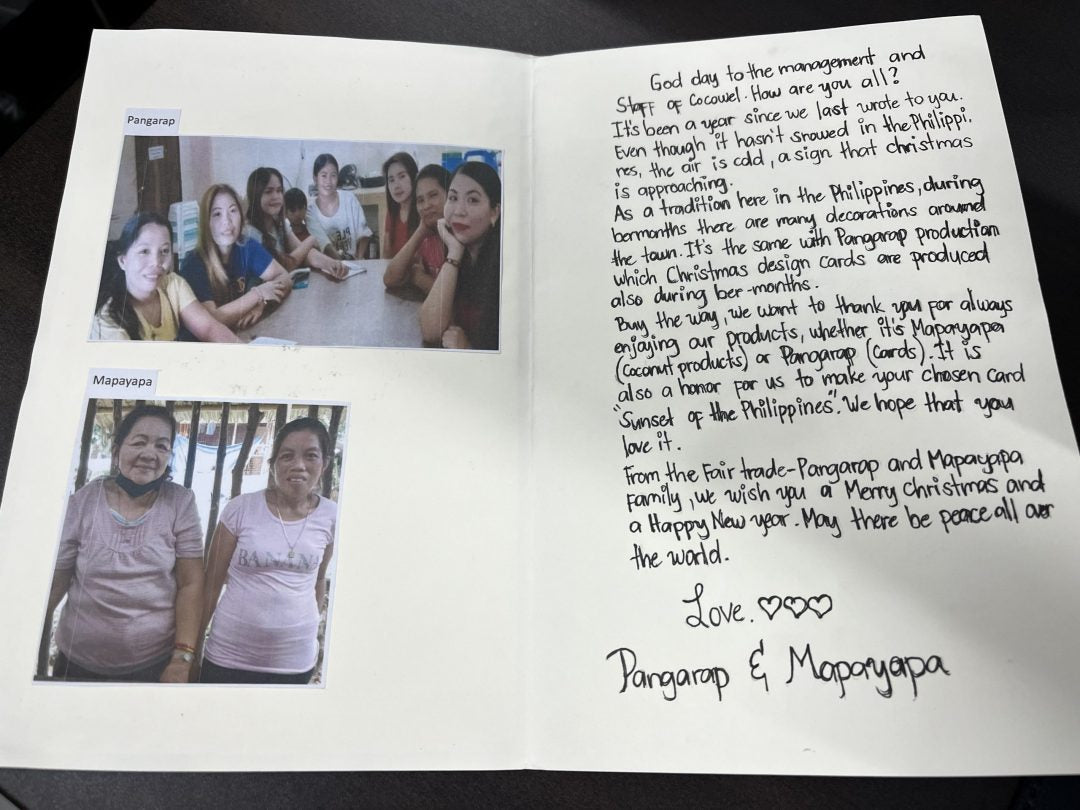 Pangarap
Mapayapa
God day to the management and
Staff of Cocowel. How are you all?
It's been a year since we last wrote to you.
Even though it hasn't snowed in the Philippi.
nes, the air is cold, a sign that christmas
is approaching.
As a tradition here in the Philippines, during
bermonths there are many decorations around
the town. It's the same with Pangarap production
which Christmas design cards are produced
also during ber-months.
Buy the way, we want to thank you for always
enjoying our products, whether it's Mapayapa
(coconut products) or Pangarap (Cards). It is
also a honor for us to make your chosen card
"Sunset of the Philippines". We hope that you
love it.
From the Fair trade-Pangarap and Mapayapa
Family, we wish you a Merry Christmas and
a Happy New year. May there be peace all over
the world.
Love. ♡♡♡
Pangarap & Mapayapa
BANANA